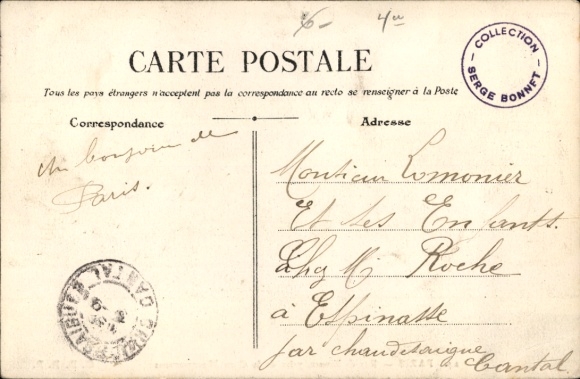 6- 4
COLLECTION
SERGE BONNET
CARTE POSTALE
Tous les pays étrangers n'acceptent pas la correspondance au recto se renseigner à la Poste
Correspondance
Adresse
Un bonjour de
Paris.
Monsieur Lemonier
Et Ses Enfants.
Chez Mr Roche
à Espinasse
par chaudesaigue
Cantal.
CANTAL